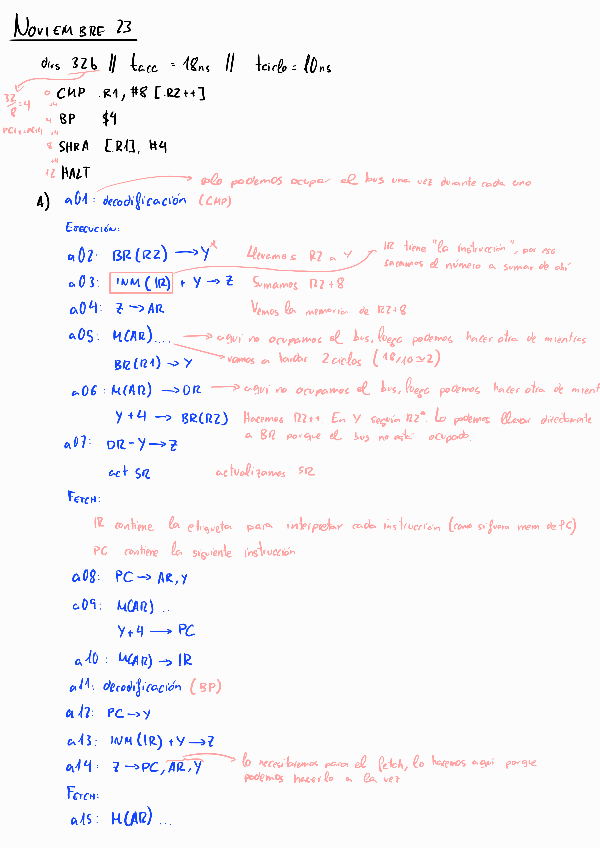 NOVIEMBRE 23
dirs 32b // tacc = 18ns // tciclo = 10ns
32/8 = 4
0 CMP .R1, #8 [.R2++]
+4
PC1 = PC+4
4 BP $4
+4
8 SHRA [.R1], #4
+4
12 HALT
solo podemos ocupar el bus una vez durante cada uno
A) a01: decodificación (CMP)
EJECUCIÓN:
a02: BR(R2) → Y* Llevamos R2 a Y
IR tiene "la instrucción", por eso
sacamos el número a sumar de ahí
a03: INM(IR) + Y → Z Sumamos R2+8
a04: Z → AR Vemos la memoria de R2+8
a05: M(AR)... → aquí no ocupamos el bus, luego podemos hacer otra de mientras
BR(R1) → Y vamos a tardar 2 ciclos (18/10 ≃ 2)
a06: M(AR) → DR → aquí no ocupamos el bus, luego podemos hacer otra de mient
Y+4 → BR(R2) Hacemos R2++ En Y seguía R2*. Lo podemos llevar directamente
a BR porque el bus no está ocupado.
a07: DR - Y → Z
act SR actualizamos SR
FETCH:
IR contiene la etiqueta para interpretar cada instrucción (como si fuera mem de PC)
PC contiene la siguiente instrucción
a08: PC → AR, Y
a09: M(AR) ..
Y+4 → PC
a10: M(AR) → IR
a11: decodificación (BP)
a12: PC → Y
a13: INM(IR) + Y → Z
a14: Z → PC, AR, Y lo necesitaremos para el fetch, lo hacemos aquí porque
podemos hacerlo a la vez
FETCH:
a15: M(AR) ...